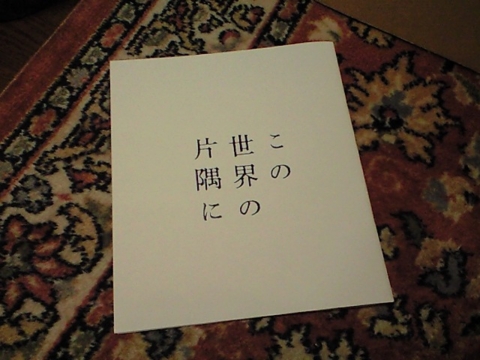 この
世界の
片隅に